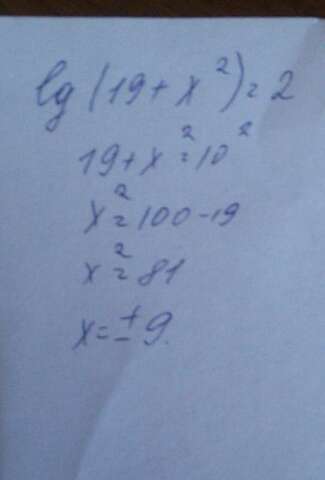 lg(19+x²)=2
19+x²=10²
x²=100-19
x²=81
x=±9.